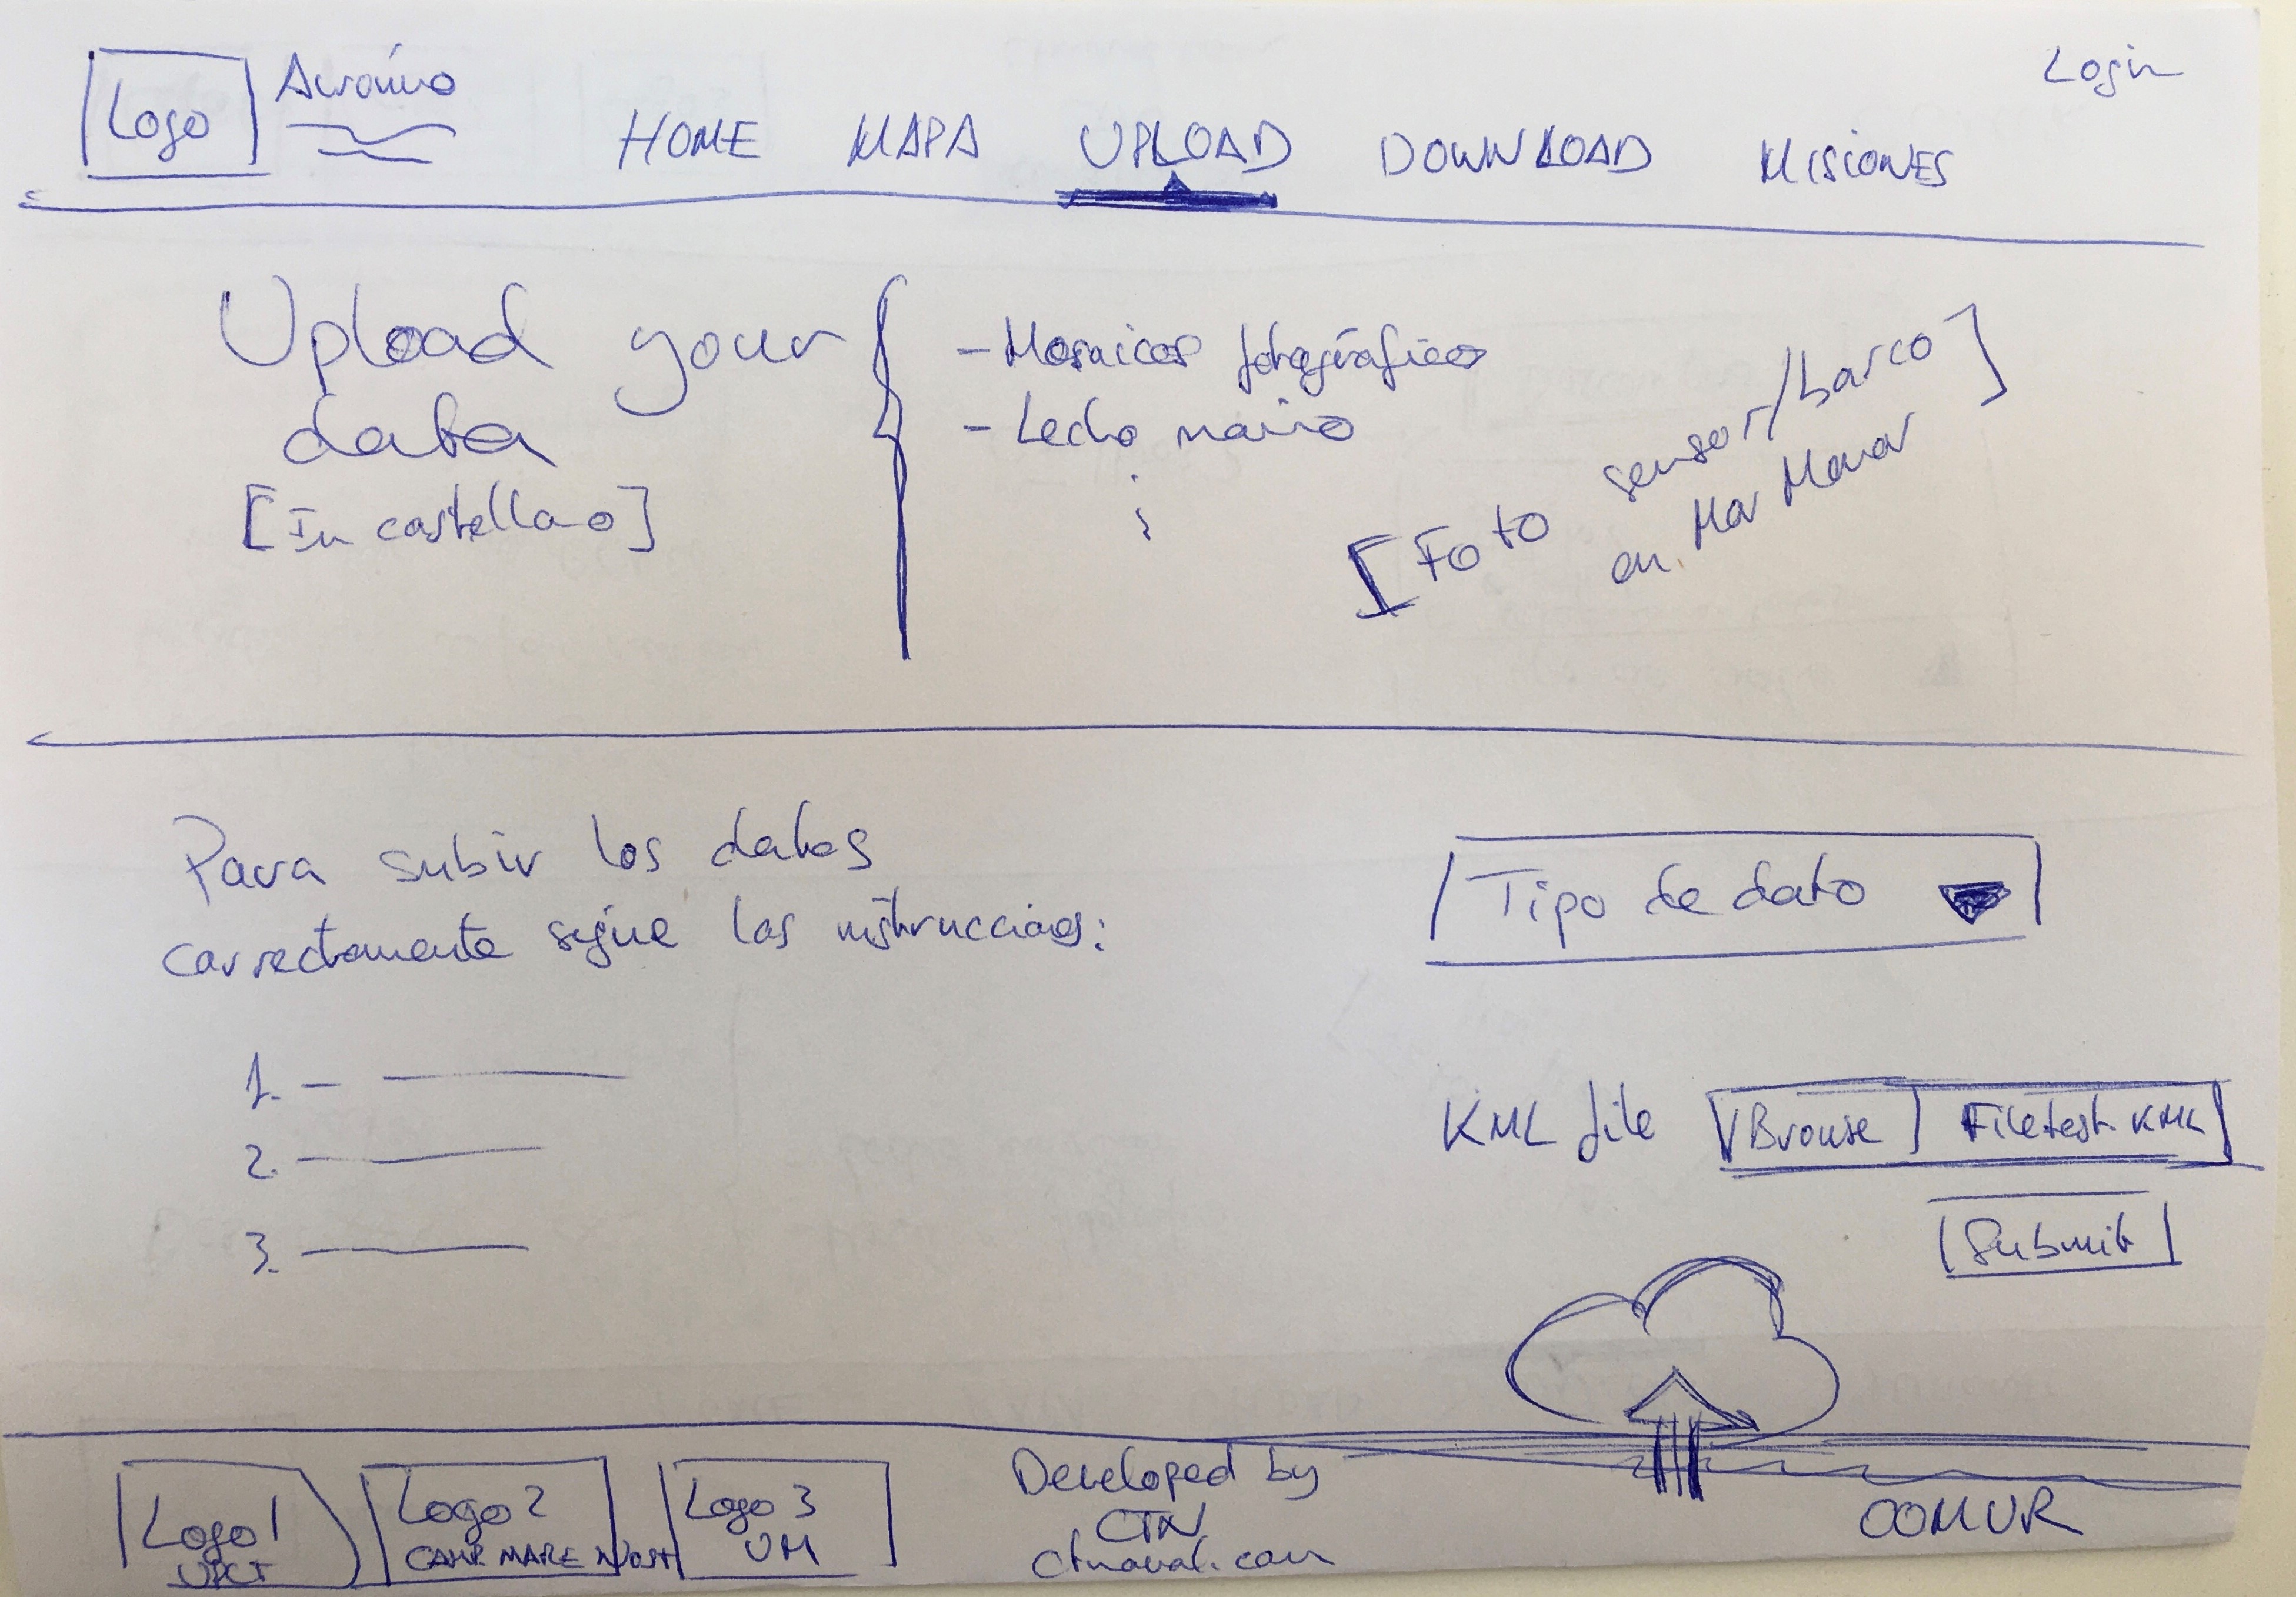 Logo
Acrónimo
Login
HOME MAPA UPLOAD DOWNLOAD MISIONES
Upload your
data
[In castellano]
- Mosaicos fotográficos
- Lecho marino
[Foto sensor/barco]
en Mar Menor
Para subir los datos
correctamente sigue las instrucciones:
1. —
2. —
3. —
Tipo de dato
KML file Browse Filetest.KML
Submit
Logo 1
UPCT
Logo 2
CAMP. MARE NOST
Logo 3
UM
Developed by
CTN
ctnaval.com
OOMUR